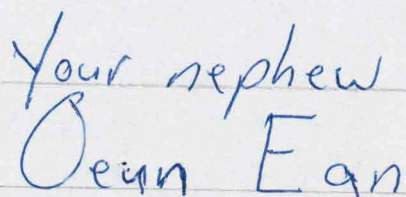 Your nephew
Oeun Ean